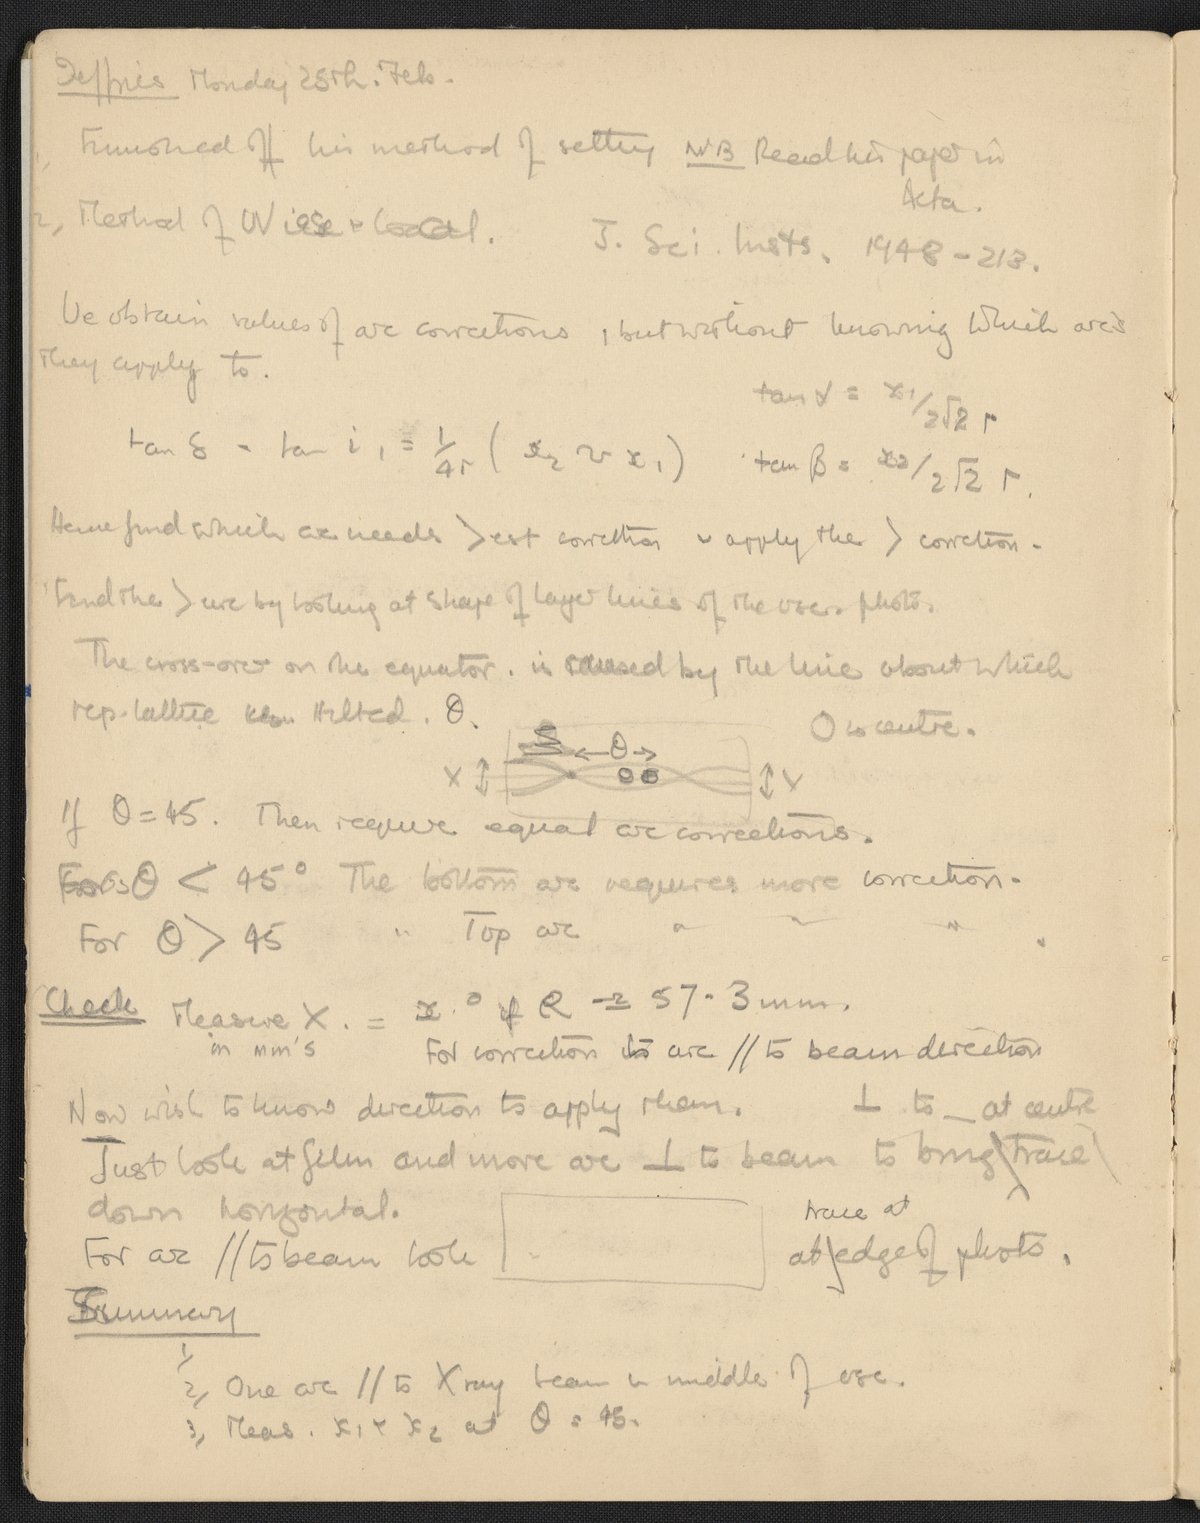 Jeffries Monday 25th. Feb.
1, Finished off his method of setting NB Read his paper in
Acta.
2, Method of
J. Sci. Insts. 1948 - 213.
We obtain values of arc corrections, but without knowing which arcs
they apply to.
tan γ = x1/2√2 r
tan δ - tan i1 = 1/4r (x2 ~ x1)
tan β = x2/2√2 r.
Hence find which arc needs >est correction & apply the > correction.
Find the > arc by looking at shape of layer lines of the osc. photo.
The cross-over on the equator. is caused by the line about which
rep. lattice tilted. θ.
O is centre.
S ←θ→
X ↕ ↕ Y
If θ=45. Then require equal arc corrections.
For θ < 45° The bottom arc requires more correction.
For θ > 45 " Top arc " " " .
Check Measure X. = x.° if R = 57.3 mm.
in mm's
For correction to arc // to beam direction
Now wish to know direction to apply them. ⊥ to _ at centre
Just look at film and move arc ⊥ to beam to bring trace
down horizontal.
trace at
For arc // to beam look at edge of photo.
Summary
1,
2, One arc // to X ray beam in middle of osc.
3, Meas. x1 & x2 at θ = 45.